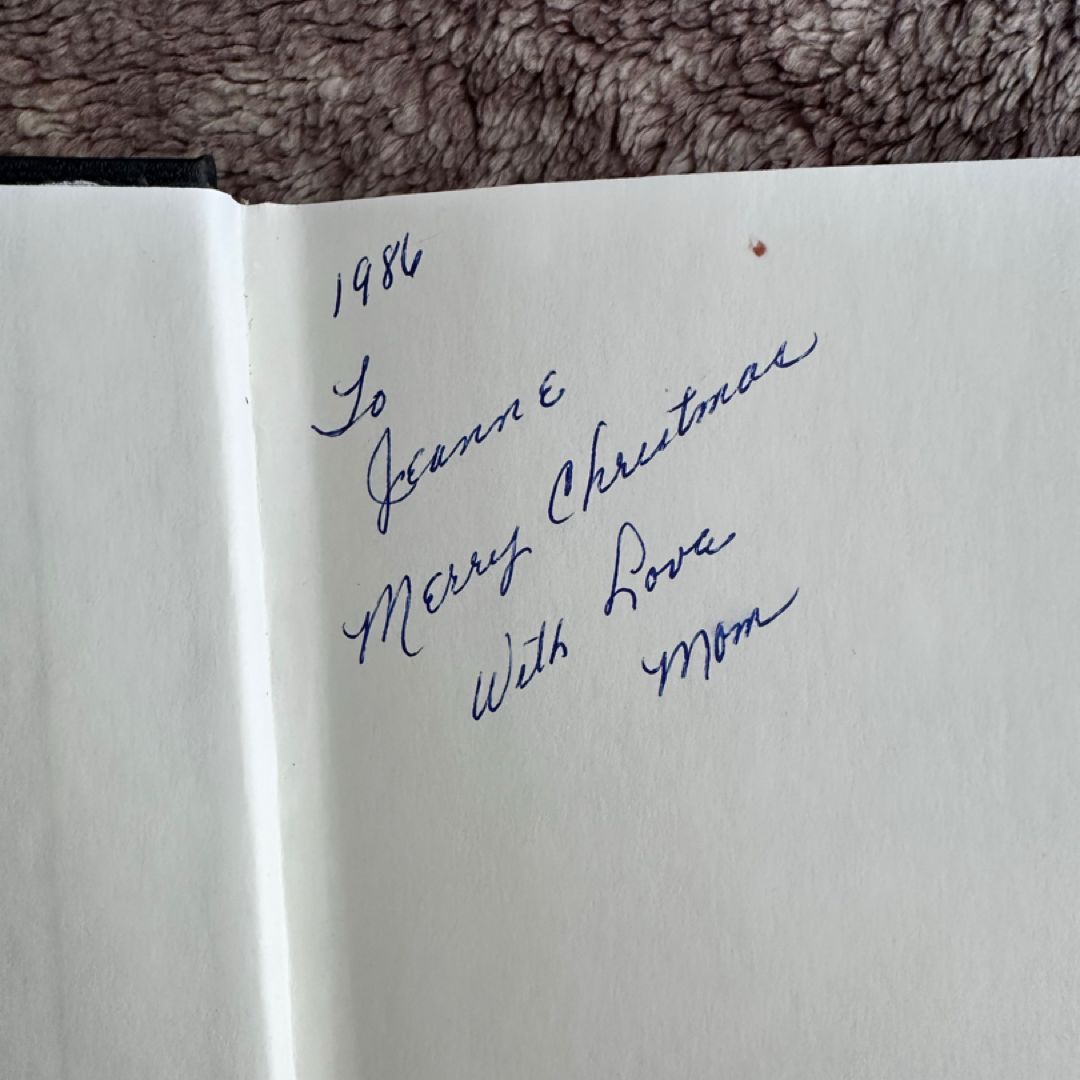 1986
To
Jeanne
Merry Christmas
With Love
Mom